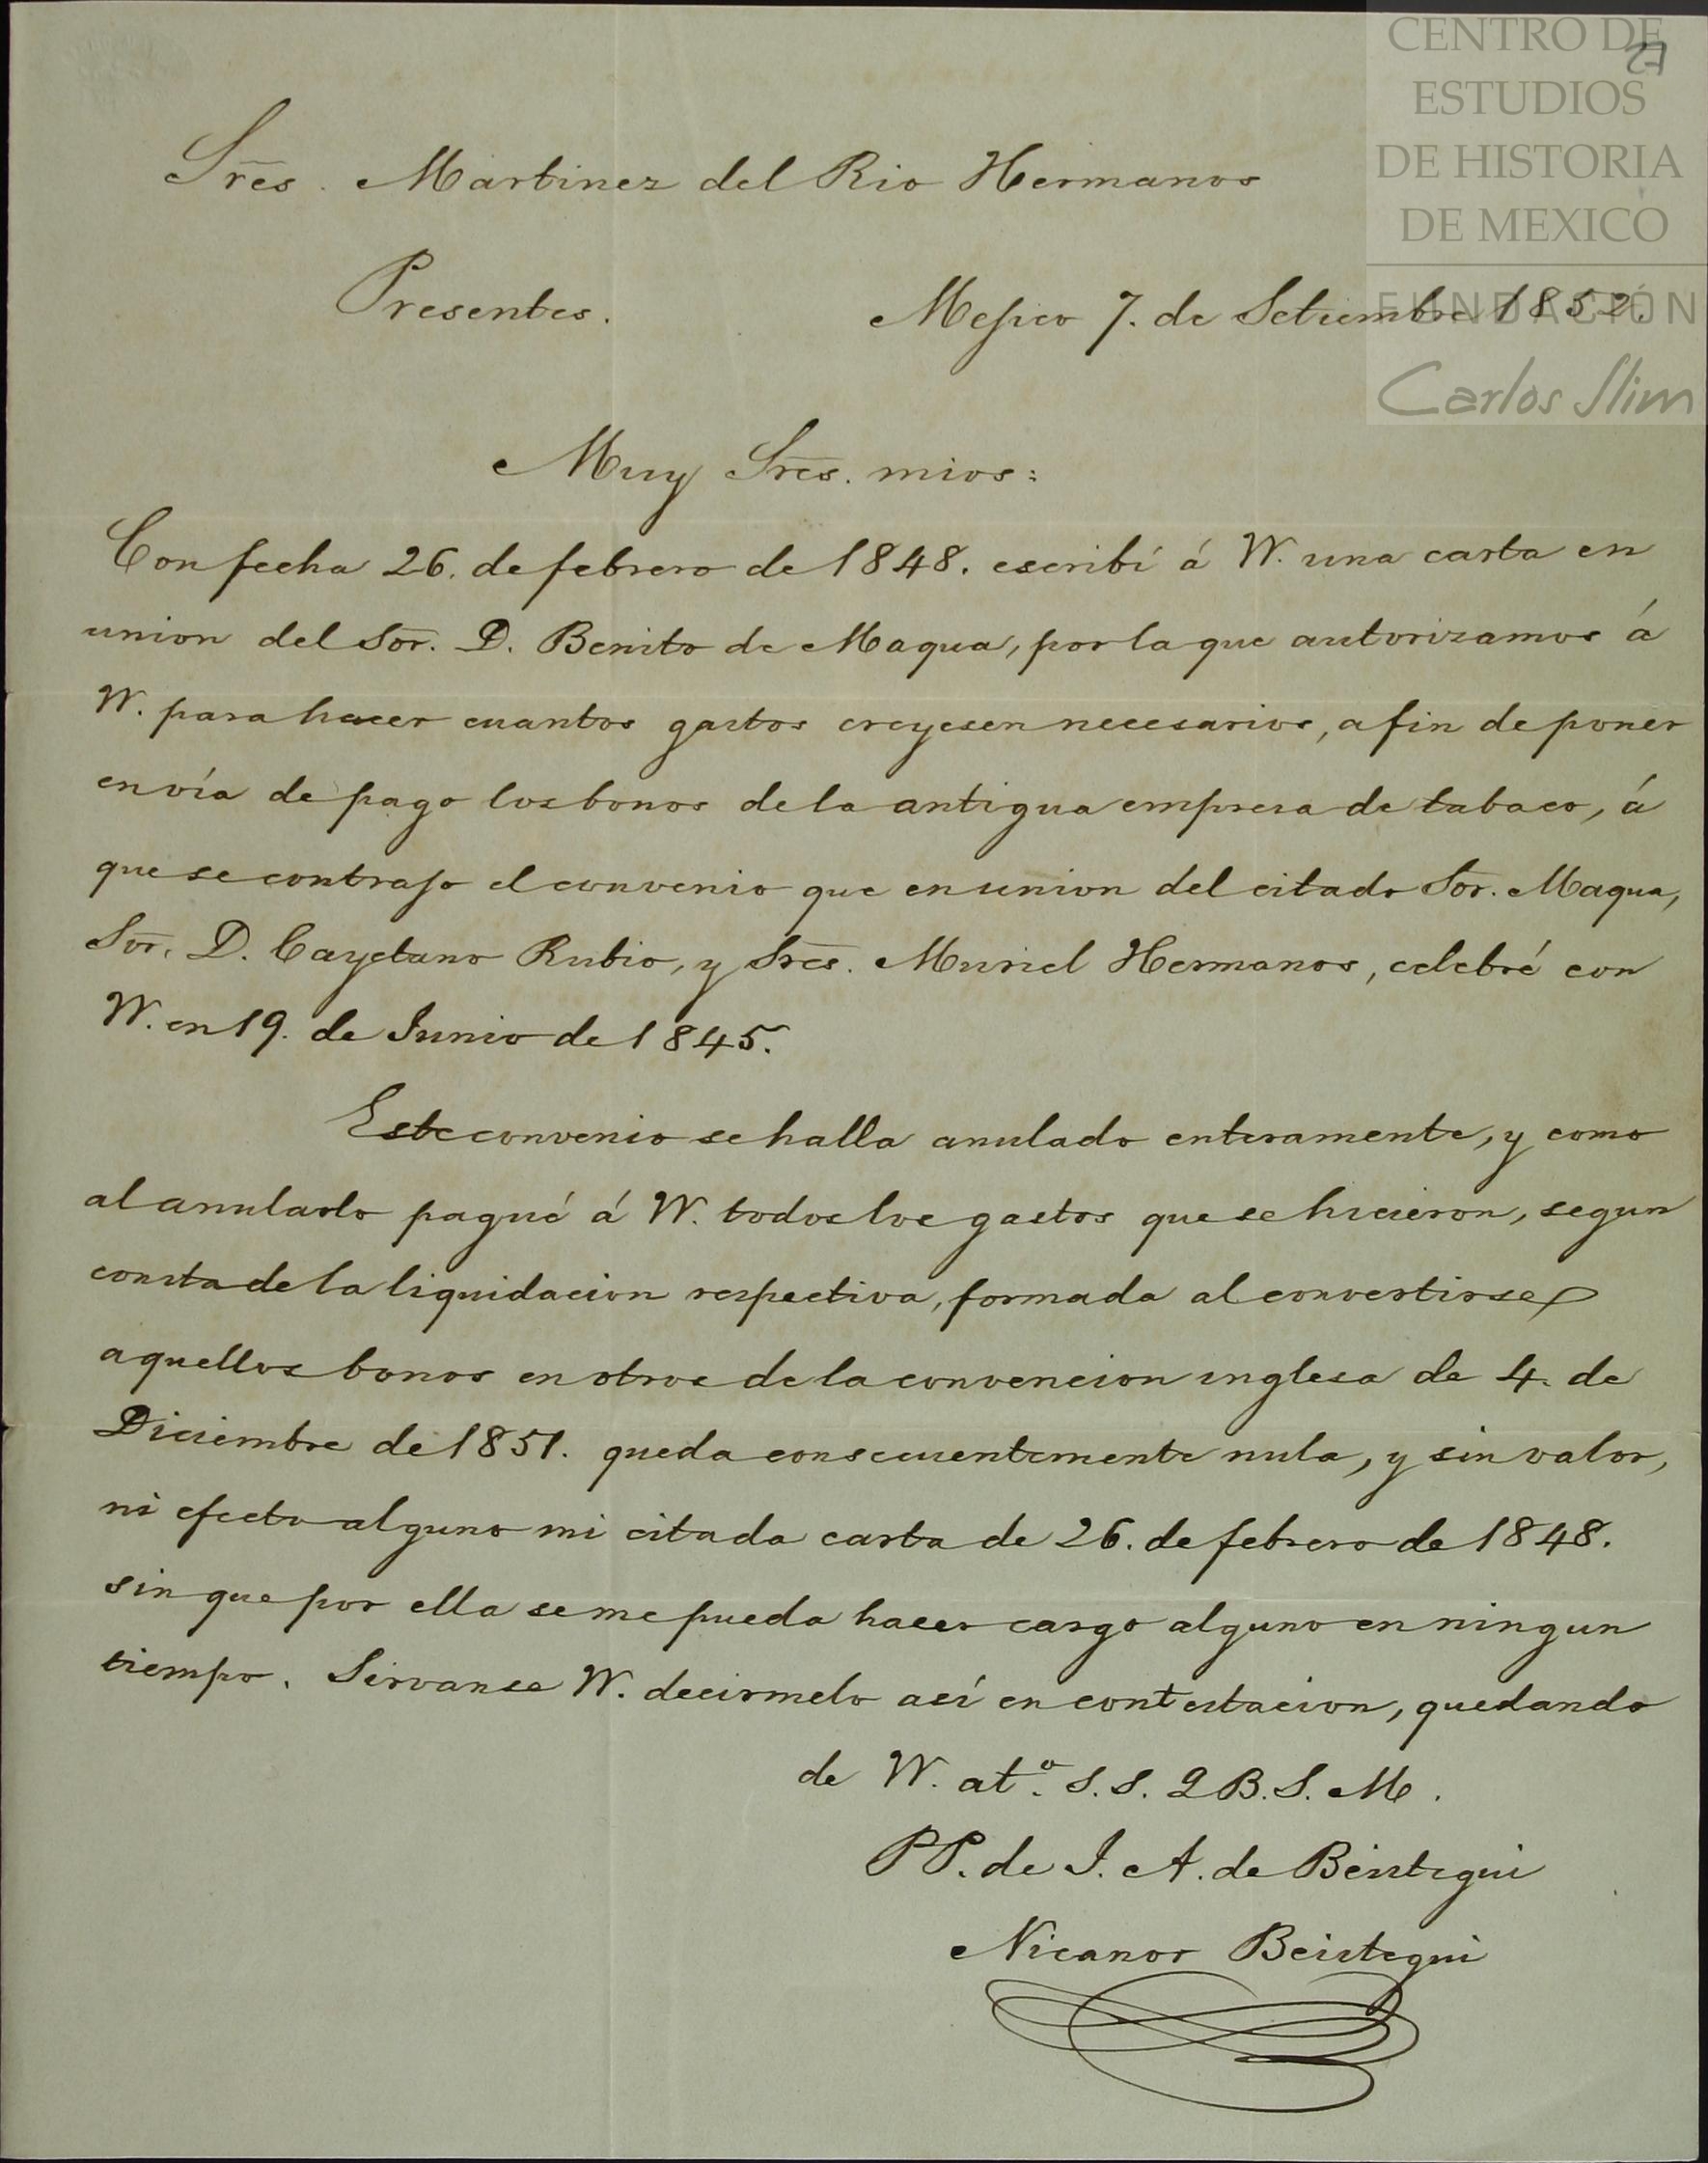 CENTRO DE
ESTUDIOS
DE HISTORIA
DE MEXICO
FUNDACIÓN
Carlos Slim
27
Sres. Martinez del Rio Hermanos
Presentes.
Mejico 7. de Setiembre 1852.
Muy Sres. mios:
Con fecha 26. de febrero de 1848. escribí á VV. una carta en
union del Sor. D. Benito de Maqua, por la que autorizamos á
VV. para hacer cuantos gastos creyesen necesarios, a fin de poner
en vía de pago los bonos de la antigua empresa de tabaco, á
que se contrajo el convenio que en union del citado Sor. Maqua,
Sor. D. Cayetano Rubio, y Sres. Muriel Hermanos, celebré con
VV. en 19. de Junio de 1845.
Este convenio se halla anulado enteramente, y como
al anularlo pagué á VV. todos los gastos que se hicieron, segun
consta de la liquidacion respectiva, formada al convertirse
aquellos bonos en otros de la convencion inglesa de 4. de
Diciembre de 1851. queda consecuentemente nula, y sin valor,
ni efecto alguno mi citada carta de 26. de febrero de 1848.
sin que por ella se me pueda hacer cargo alguno en ningun
tiempo. Sirvanse VV. decirmelo así en contestacion, quedando
de VV. at.º S. S. Q B. S. M.
PP. de J. A. de Beistegui
Nicanor Beistegui